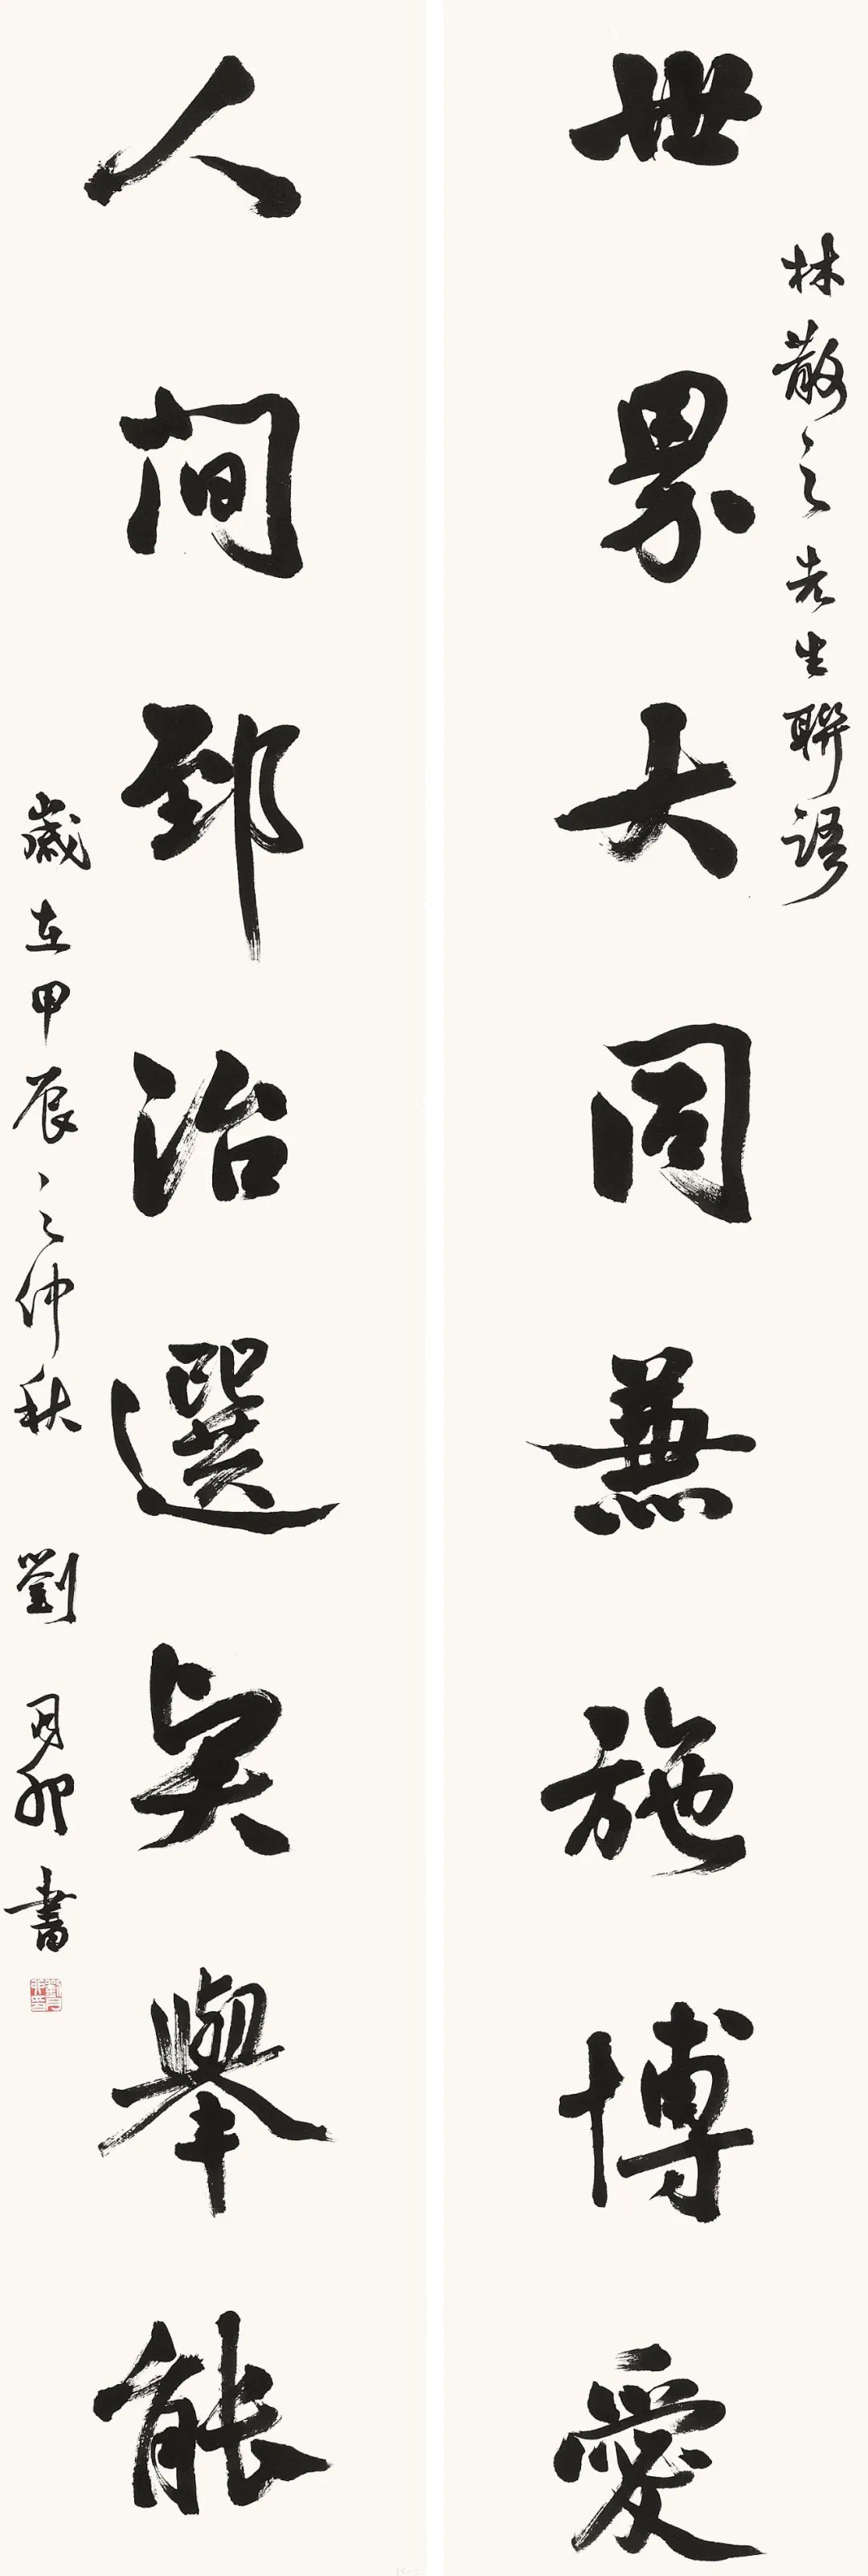 世界大同兼施博愛
林散之先生聯語
人间郅治選贤舉能
歲在甲辰之仲秋 劉月卯書